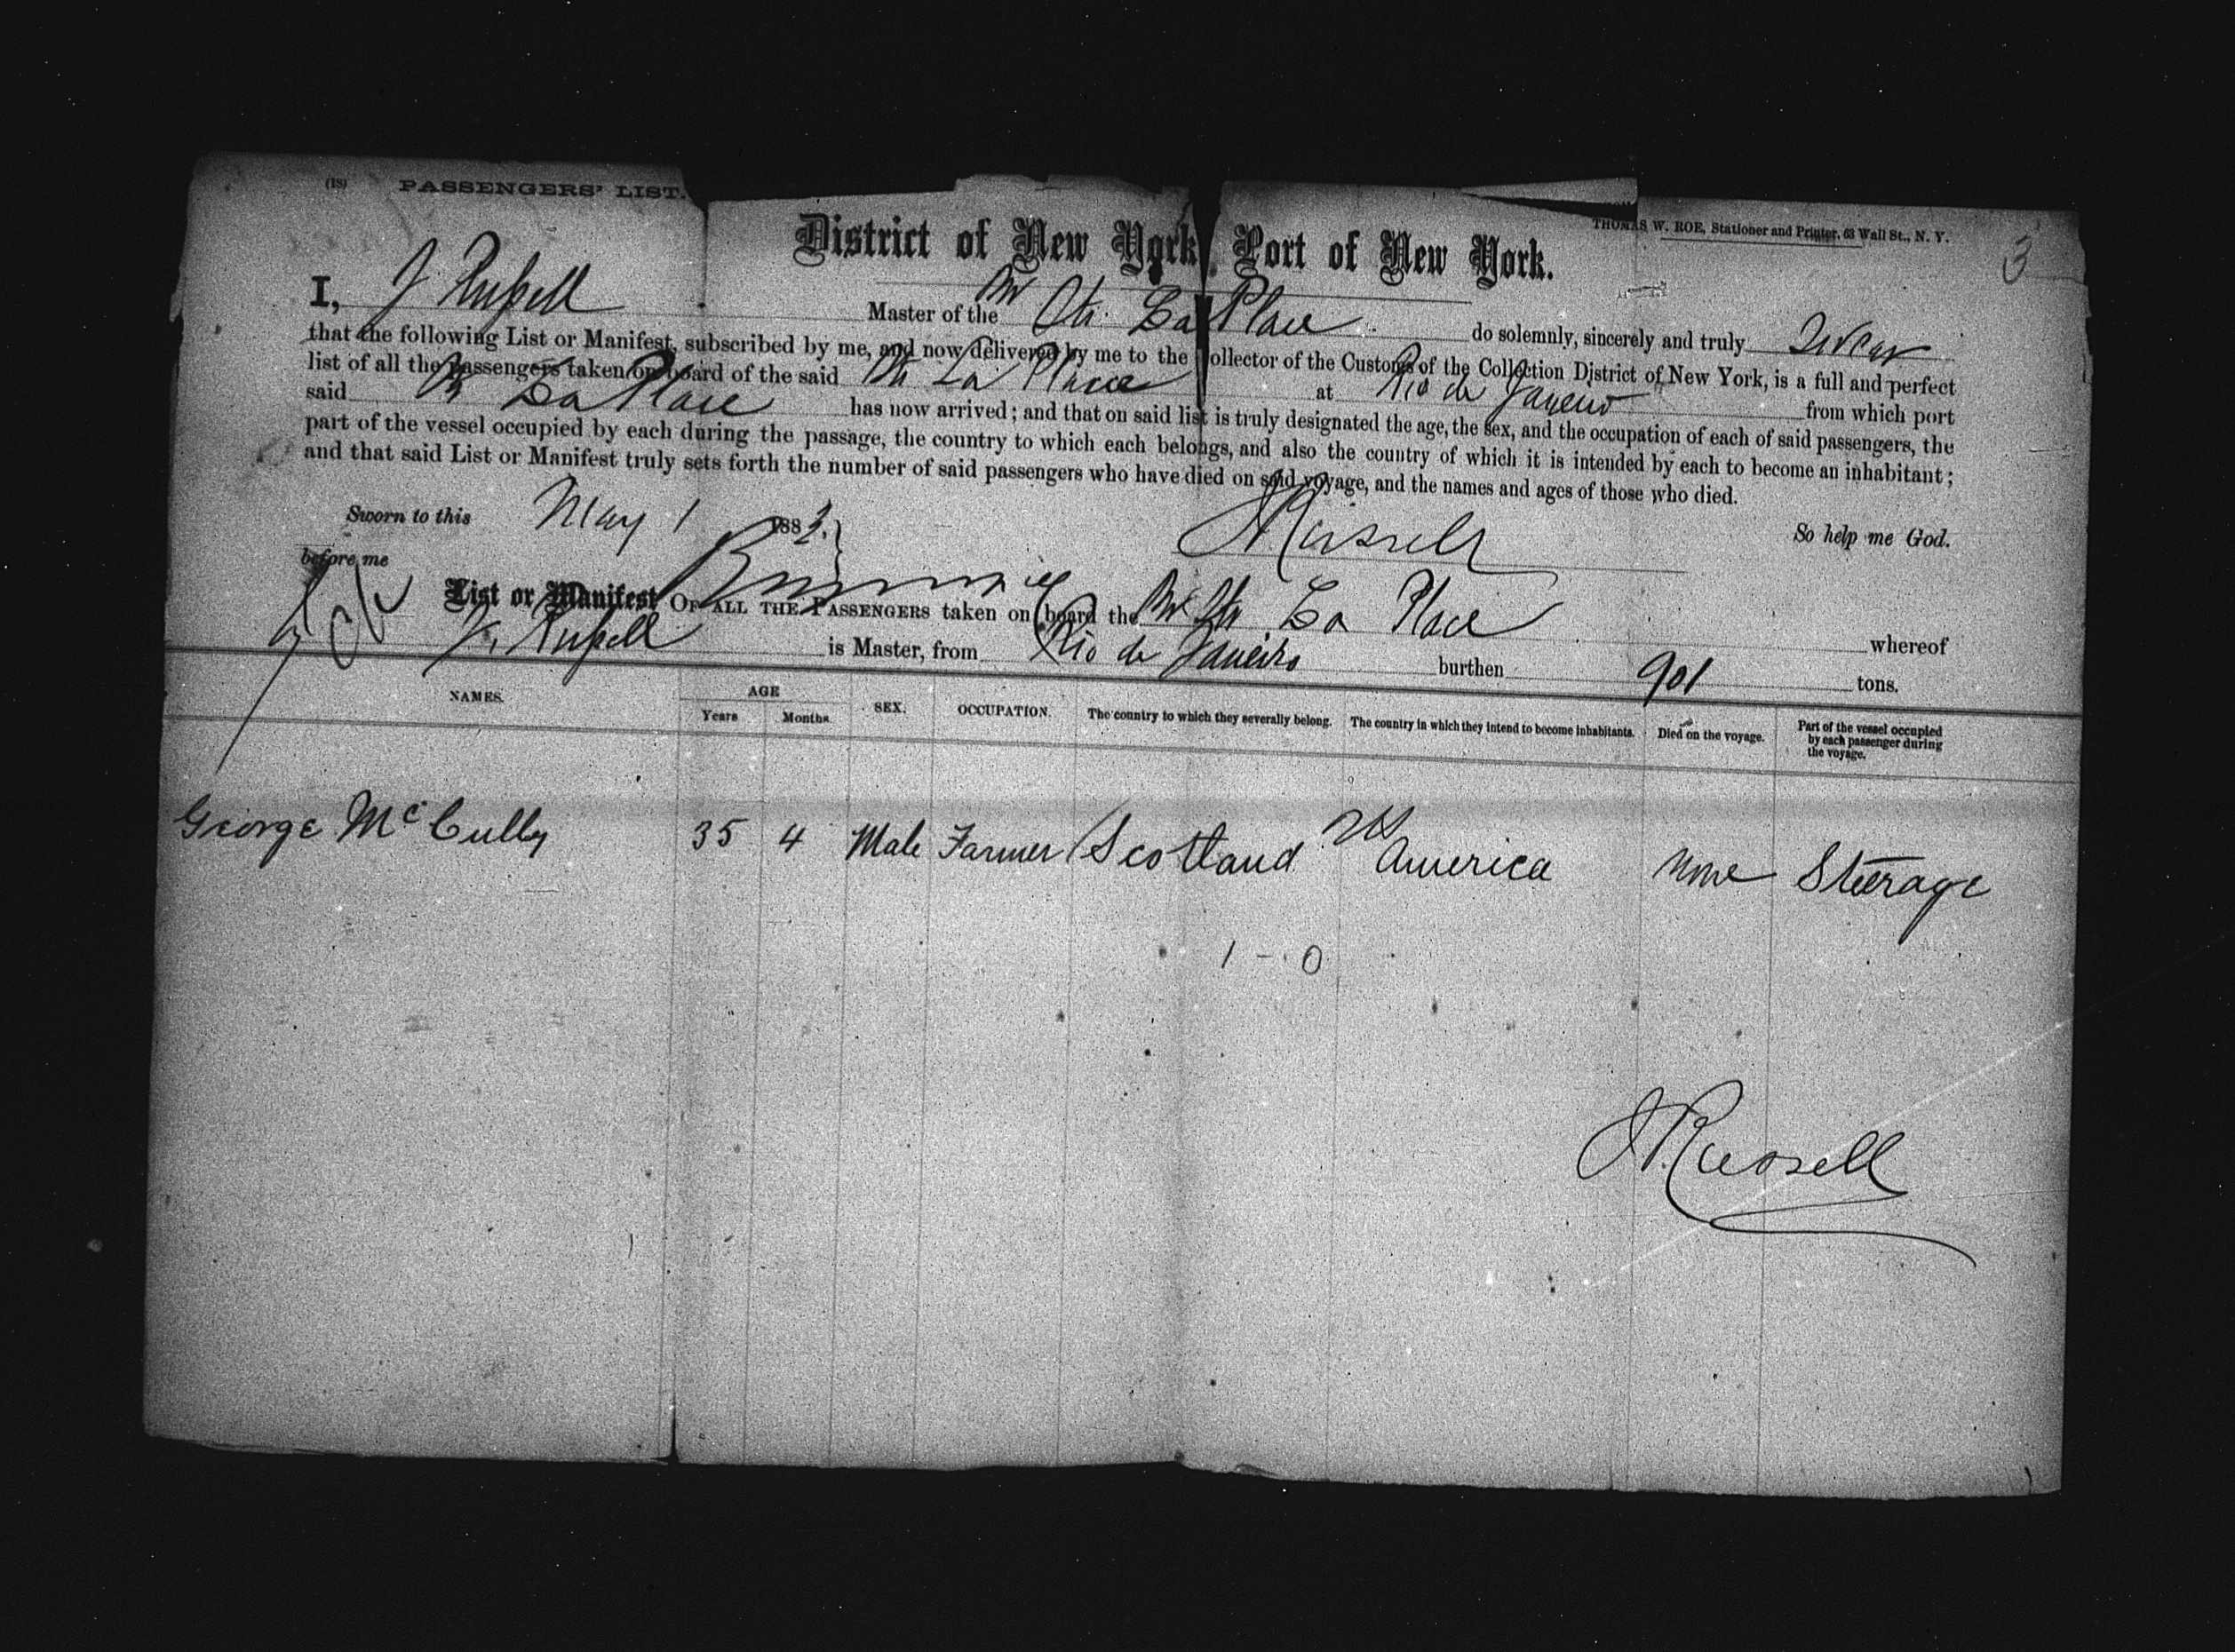 (18) PASSENGERS' LIST.
THOMAS W. ROE, Stationer and Printer, 63 Wall St., N. Y.
3
District of New York, Port of New York.
I, J Russell Master of the Br Str La Place do solemnly, sincerely and truly Swear
that the following List or Manifest, subscribed by me, and now delivered by me to the Collector of the Customs of the Collection District of New York, is a full and perfect
list of all the passengers taken on board of the said Str La Place at Rio de Janeiro from which port
said Str La Place has now arrived; and that on said list is truly designated the age, the sex, and the occupation of each of said passengers, the
part of the vessel occupied by each during the passage, the country to which each belongs, and also the country of which it is intended by each to become an inhabitant;
and that said List or Manifest truly sets forth the number of said passengers who have died on said voyage, and the names and ages of those who died.
So help me God.
Sworn to this May 1 1883.
J Russell
before me
List or Manifest OF ALL THE PASSENGERS taken on board the Br Str La Place whereof
J. Russell is Master, from Rio de Janeiro burthen 901 tons.
NAMES. AGE Years Months. SEX. OCCUPATION. The country to which they severally belong. The country in which they intend to become inhabitants. Died on the voyage. Part of the vessel occupied by each passenger during the voyage.
George McCully 35 4 Male Farmer Scotland US America None Steerage
1 - 0
J Russell